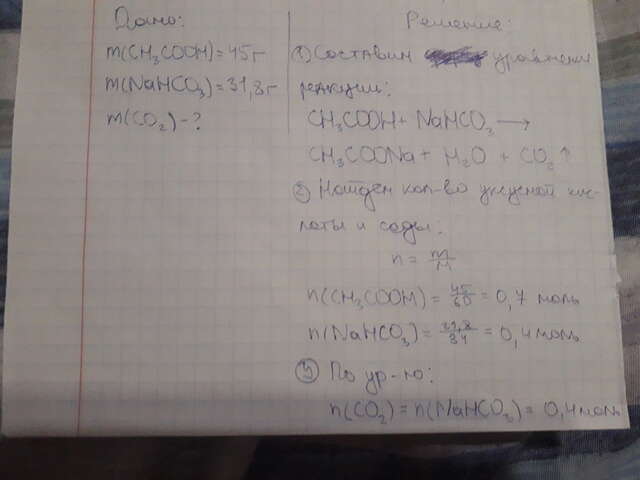 Дано:
m(CH₃COOH)=45г
m(NaHCO₃)=31,8г
m(CO₂)-?
Решение:
① Составим уравнение
реакции:
CH₃COOH + NaHCO₃ →
CH₃COONa + H₂O + CO₂↑
② Найдем кол-во уксусной кис-
лоты и соды:
n = m/M
n(CH₃COOH) = 45/60 = 0,7 моль
n(NaHCO₃) = 31,8/84 = 0,4 моль
③ По ур-ю:
n(CO₂) = n(NaHCO₃) = 0,4 моль